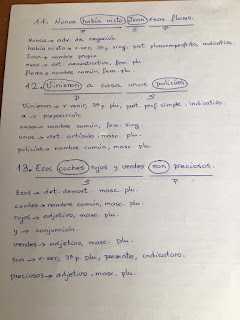 11. Nunca había visto Juan esas flores.
P S P
Nunca → adv. de negación
había visto → v. ver, 3ª p. sing. pret. pluscuamperfecto, indicativo.
Juan → nombre propio
esas → det. demostrativo, fem. plu.
flores → nombre común, fem. plu.
12. Vinieron a casa unos policías
P S
Vinieron → v. venir, 3ª p. plu, pret. perf. simple, indicativo.
a → preposición
casa → nombre común, fem. sing.
unos → det. artículo, masc. plu.
policías → nombre común, masc. plu.
13. Esos coches rojos y verdes son preciosos.
S P
Esos → det. demost. masc. plu.
coches → nombre común, masc. plu.
rojos → adjetivo, masc. plu.
y → conjunción
verdes → adjetivo, masc. plu.
son → v. ser, 3ª p. plu, presente, indicativo.
preciosos → adjetivo, masc. plu.